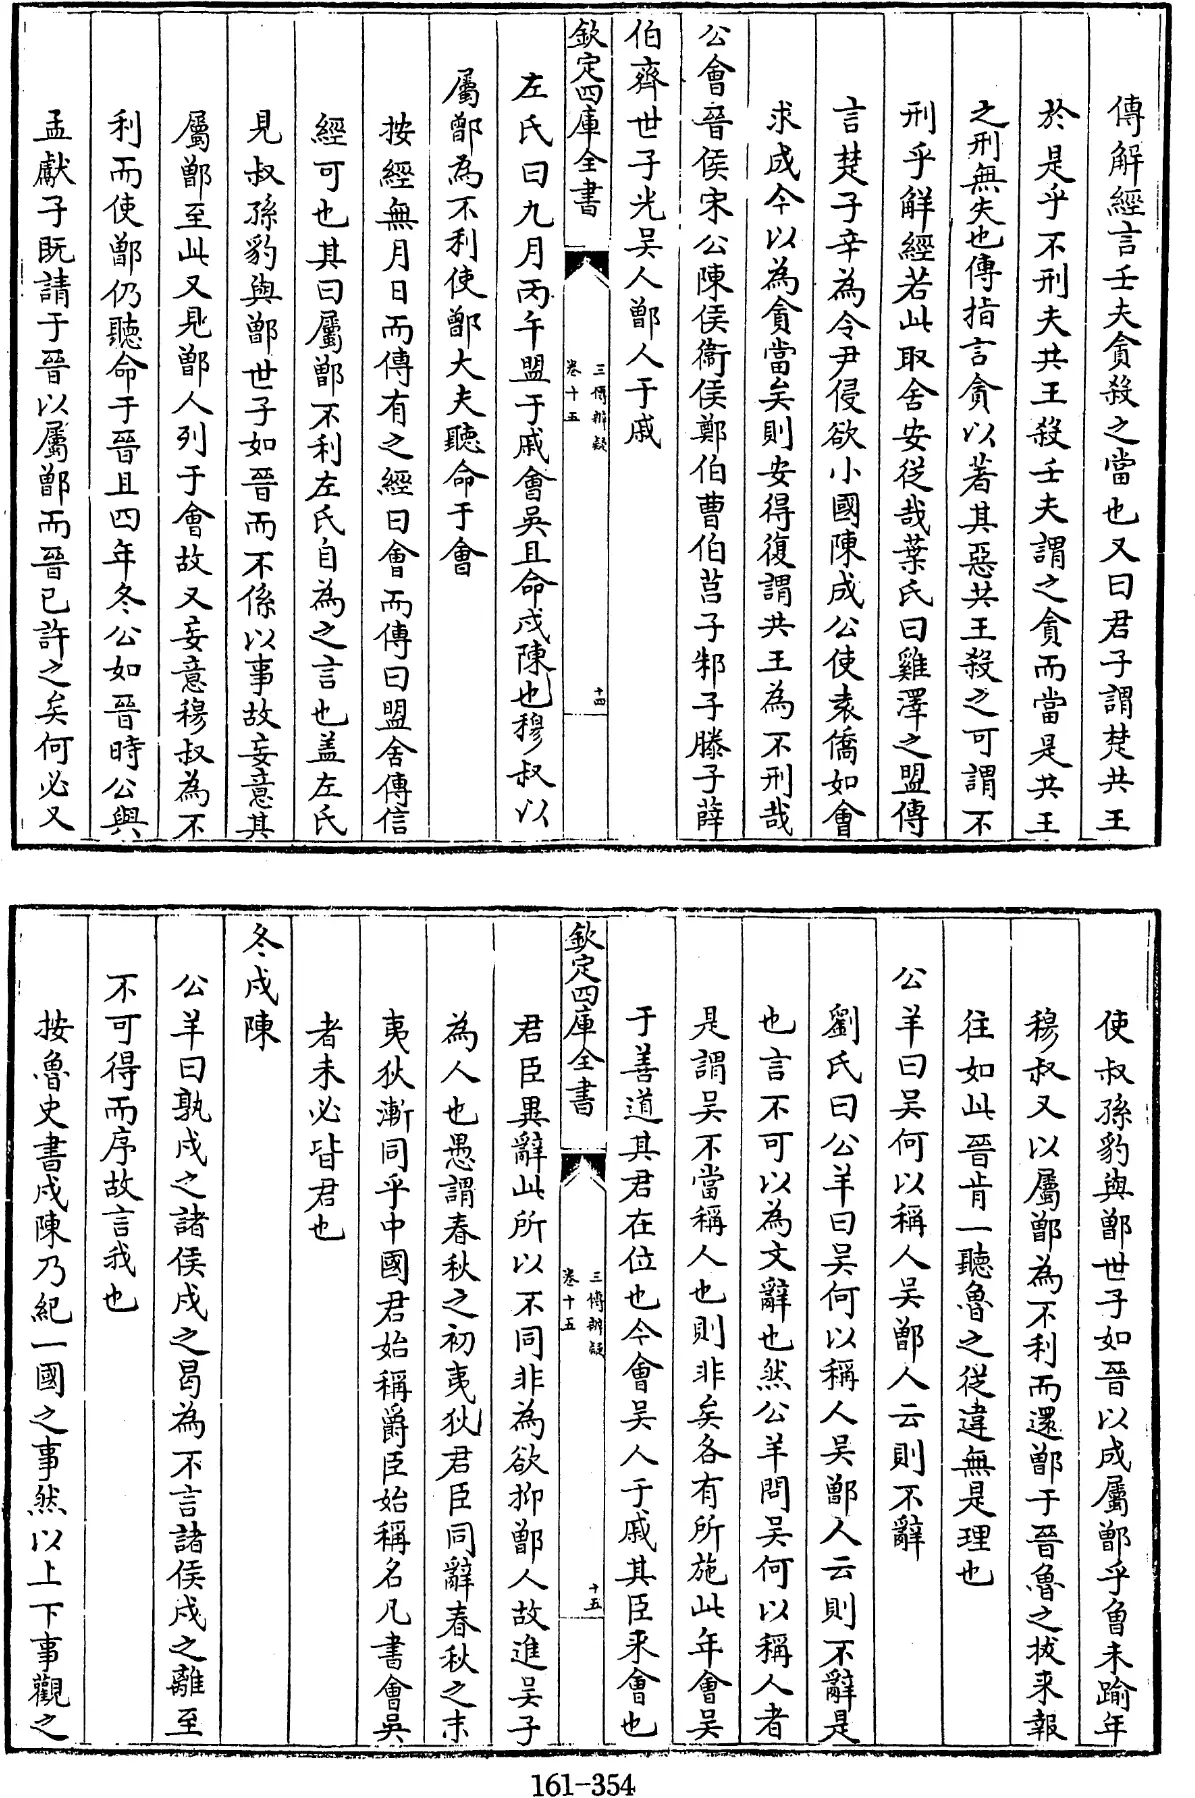 傳解經言壬夫貪殺之當也又曰君子謂楚共王
於是乎不刑夫共王殺壬夫謂之貪而當是共王
之刑無失也傳指言貪以著其惡共王殺之可謂不
刑乎解經若此取舍安從哉葉氏曰雞澤之盟傳
言楚子辛為令尹侵欲小國陳成公使袁僑如會
求成今以為貪當矣則安得復謂共王為不刑哉
公會晉侯宋公陳侯衛侯鄭伯曹伯莒子邾子滕子薛
伯齊世子光吳人鄫人于戚
欽定四庫全書
三傳辨疑
卷十五
十四
左氏曰九月丙午盟于戚會吳且命戍陳也穆叔以
屬鄫為不利使鄫大夫聽命于會
按經無月日而傳有之經曰會而傳曰盟舍傳信
經可也其曰屬鄫不利左氏自為之言也盖左氏
見叔孫豹與鄫世子如晉而不係以事故妄意其
屬鄫至此又見鄫人列于會故又妄意穆叔為不
利而使鄫仍聽命于晉且四年冬公如晉時公與
孟獻子既請于晉以屬鄫而晉已許之矣何必又
使叔孫豹與鄫世子如晉以成屬鄫乎魯未踰年
穆叔又以屬鄫為不利而還鄫于晉魯之拔來報
往如此晉肯一聽魯之從違無是理也
公羊曰吳何以稱人吳鄫人云則不辭
劉氏曰公羊曰吳何以稱人吳鄫人云則不辭是
也言不可以為文辭也然公羊問吳何以稱人者
是謂吳不當稱人也則非矣各有所施此年會吳
于善道其君在位也今會吳人于戚其臣來會也
欽定四庫全書
三傳辨疑
卷十五
十五
君臣異辭此所以不同非為欲抑鄫人故進吳子
為人也愚謂春秋之初夷狄君臣同辭春秋之末
夷狄漸同乎中國君始稱爵臣始稱名凡書會吳
者未必皆君也
冬戍陳
公羊曰孰戍之諸侯戍之曷為不言諸侯戍之離至
不可得而序故言我也
按魯史書戍陳乃紀一國之事然以上下事觀之
161-354